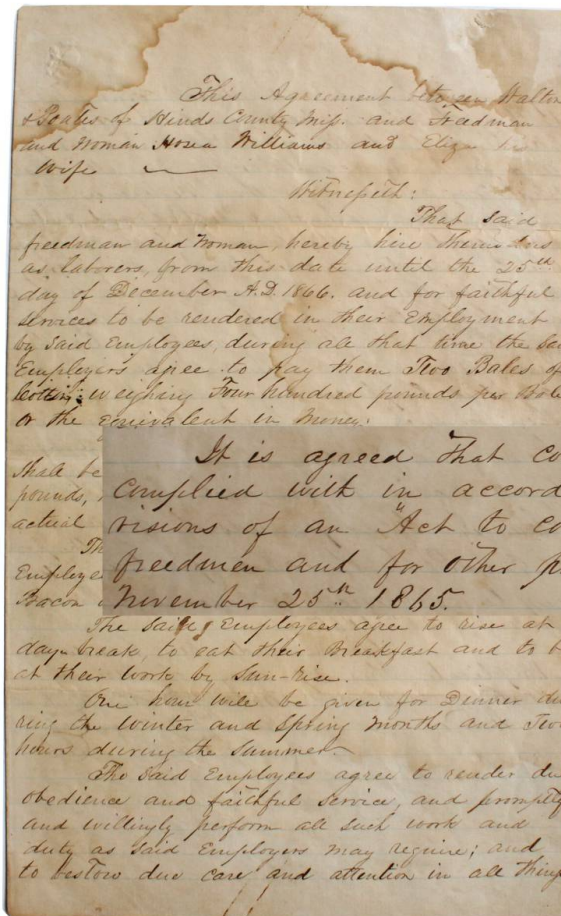 This Agreement between Walton
& Yeates of Hinds County Miss. and Freedman
and Woman Hosea Williams and Eliza his
Wife
Witnesseth:
That said
freedman and Woman, hereby hire themselves
as Laborers, from this date until the 25th
day of December A.D. 1866. and for faithful
services to be rendered in their Employment
by said Employees, during all that time the Sai
Employers agree to pay them Two Bales of
Cotton; weighing Four hundred pounds per Bale
or the equivalent in money.
Shall be
pounds,
actual
Th
Employe
Bacon
It is agreed that co
complied with in accord
visions of an "Act to co
freedmen and for other p
November 25th 1865.
The said Employees agree to rise at
day-break, to eat their Breakfast and to b
at their work by Sun-rise.
One hour will be given for Dinner du
ring the Winter and Spring Months and Two
hours during the Summer
The said Employees agree to render du
obedience and faithful service, and promptly
and willingly perform all such work and
duty as said Employers may require; and
to bestow due care and attention in all things